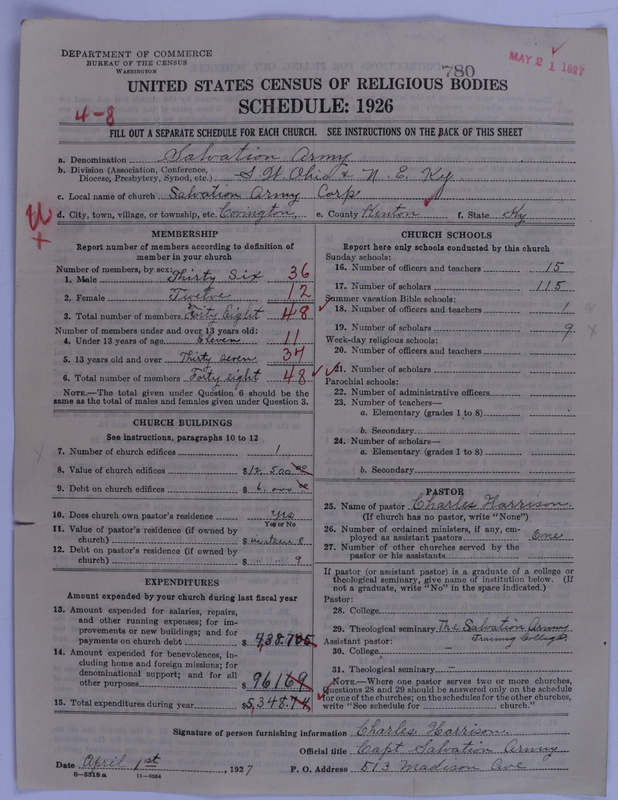 DEPARTMENT OF COMMERCE
BUREAU OF THE CENSUS
WASHINGTON
780
MAY 21 1927
UNITED STATES CENSUS OF RELIGIOUS BODIES
SCHEDULE: 1926
4-8
FILL OUT A SEPARATE SCHEDULE FOR EACH CHURCH. SEE INSTRUCTIONS ON THE BACK OF THIS SHEET
a. Denomination Salvation Army
b. Division (Association, Conference,
Diocese, Presbytery, Synod, etc.) S W Ohio & N. E. Ky
c. Local name of church Salvation Army Corp
d. City, town, village, or township, etc. Covington, e. County Kenton f. State Ky
MEMBERSHIP
Report number of members according to definition of
member in your church
Number of members, by sex:
1. Male Thirty Six 36
2. Female Twelve 12
3. Total number of members Forty Eight 48
Number of members under and over 13 years old:
4. Under 13 years of age Eleven 11
5. 13 years old and over Thirty seven 37
6. Total number of members Forty eight 48
NOTE.—The total given under Question 6 should be the
same as the total of males and females given under Question 3.
CHURCH BUILDINGS
See instructions, paragraphs 10 to 12
7. Number of church edifices 1
8. Value of church edifices $12,500.00
9. Debt on church edifices $6,000.00
10. Does church own pastor's residence yes
Yes or No
11. Value of pastor's residence (if owned by
church) $ 8
12. Debt on pastor's residence (if owned by
church) $ 9
EXPENDITURES
Amount expended by your church during last fiscal year
13. Amount expended for salaries, repairs,
and other running expenses; for im-
provements or new buildings; and for
payments on church debt $
14. Amount expended for benevolences, in-
cluding home and foreign missions; for
denominational support; and for all
other purposes $96169
15. Total expenditures during year $5,348.74
CHURCH SCHOOLS
Report here only schools conducted by this church
Sunday schools:
16. Number of officers and teachers 15
17. Number of scholars 115
Summer vacation Bible schools:
18. Number of officers and teachers 1
19. Number of scholars 9
Week-day religious schools:
20. Number of officers and teachers
21. Number of scholars
Parochial schools:
22. Number of administrative officers
23. Number of teachers—
a. Elementary (grades 1 to 8)
b. Secondary
24. Number of scholars—
a. Elementary (grades 1 to 8)
b. Secondary
PASTOR
25. Name of pastor Charles Harrison
(If church has no pastor, write "None")
26. Number of ordained ministers, if any, em-
ployed as assistant pastors One
27. Number of other churches served by the
pastor or his assistants
If pastor (or assistant pastor) is a graduate of a college or
theological seminary, give name of institution below. (If
not a graduate, write "No" in the space indicated.)
Pastor:
28. College
29. Theological seminary The Salvation Army
Training College
Assistant pastor:
30. College —
31. Theological seminary —
NOTE.—Where one pastor serves two or more churches,
Questions 28 and 29 should be answered only on the schedule
for one of the churches; on the schedules for the other churches,
write "See schedule for church."
Signature of person furnishing information Charles Harrison
Official title Capt Salvation Army
Date April 1st, 1927 P. O. Address 513 Madison Ave
8-5518a 11-9054